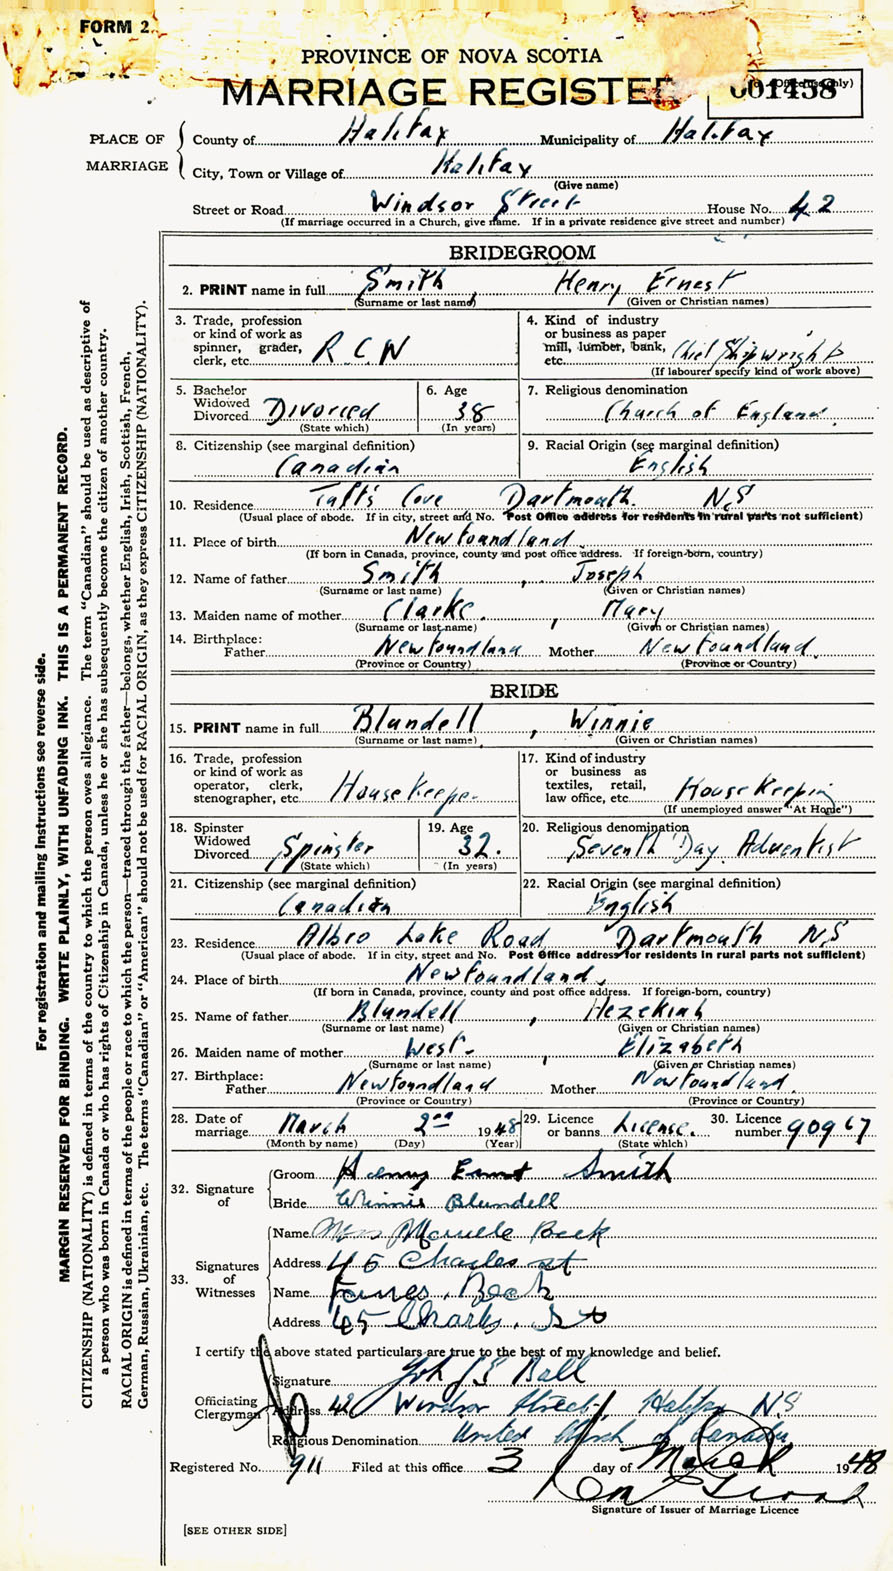 FORM 2
PROVINCE OF NOVA SCOTIA
MARRIAGE REGISTER
(Office use only)
001438
PLACE OF MARRIAGE
County of Halifax Municipality of Halifax
City, Town or Village of Halifax
(Give name)
Street or Road Windsor Street House No. 42
(If marriage occurred in a Church, give name. If in a private residence give street and number)
BRIDEGROOM
2. PRINT name in full Smith Henry Ernest
(Surname or last name) (Given or Christian names)
3. Trade, profession or kind of work as spinner, grader, clerk, etc. R C N
4. Kind of industry or business as paper mill, lumber, bank, etc. Chief Shipwright
(If labourer specify kind of work above)
5. Bachelor Widowed Divorced Divorced
(State which)
6. Age 38
(In years)
7. Religious denomination
Church of England
8. Citizenship (see marginal definition)
Canadian
9. Racial Origin (see marginal definition)
English
10. Residence Tuft's Cove Dartmouth N.S
(Usual place of abode. If in city, street and No. Post Office address for residents in rural parts not sufficient)
11. Place of birth Newfoundland
(If born in Canada, province, county and post office address. If foreign-born, country)
12. Name of father Smith, Joseph
(Surname or last name) (Given or Christian names)
13. Maiden name of mother Clarke, Mary
(Surname or last name) (Given or Christian names)
14. Birthplace:
Father Newfoundland Mother Newfoundland
(Province or Country) (Province or Country)
BRIDE
15. PRINT name in full Blundell, Winnie
(Surname or last name) (Given or Christian names)
16. Trade, profession or kind of work as operator, clerk, stenographer, etc. Housekeeper
17. Kind of industry or business as textiles, retail, law office, etc. Housekeeping
(If unemployed answer "At Home")
18. Spinster Widowed Divorced Spinster
(State which)
19. Age 32.
(In years)
20. Religious denomination
Seventh Day Adventist
21. Citizenship (see marginal definition)
Canadian
22. Racial Origin (see marginal definition)
English
23. Residence Albro Lake Road Dartmouth N.S
(Usual place of abode. If in city, street and No. Post Office address for residents in rural parts not sufficient)
24. Place of birth Newfoundland.
(If born in Canada, province, county and post office address. If foreign-born, country)
25. Name of father Blundell, Hezekiah
(Surname or last name) (Given or Christian names)
26. Maiden name of mother West, Elizabeth
(Surname or last name) (Given or Christian names)
27. Birthplace:
Father Newfoundland Mother Newfoundland.
(Province or Country) (Province or Country)
28. Date of marriage March 2nd 1948
(Month by name) (Day) (Year)
29. Licence or banns License.
(State which)
30. Licence number 90967
32. Signature of
Groom Henry Ernest Smith
Bride Winnie Blundell
33. Signatures of Witnesses
Name Mrs Beck
Address 45 Charles st
Name James Beck
Address 45 Charles St
I certify the above stated particulars are true to the best of my knowledge and belief.
Officiating Clergyman
Signature Ball
Address 42 Windsor Street Halifax N.S
Religious Denomination United Church of Canada
Registered No. 911 Filed at this office 3 day of March 1948
Signature of Issuer of Marriage Licence
[SEE OTHER SIDE]
For registration and mailing instructions see reverse side.
MARGIN RESERVED FOR BINDING. WRITE PLAINLY, WITH UNFADING INK. THIS IS A PERMANENT RECORD.
CITIZENSHIP (NATIONALITY) is defined in terms of the country to which the person owes allegiance. The term "Canadian" should be used as descriptive of
a person who was born in Canada or who has rights of Citizenship in Canada, unless he or she has subsequently become the citizen of another country.
RACIAL ORIGIN is defined in terms of the people or race to which the person—traced through the father—belongs, whether English, Irish, Scottish, French,
German, Russian, Ukrainian, etc. The terms "Canadian" or "American" should not be used for RACIAL ORIGIN, as they express CITIZENSHIP (NATIONALITY).